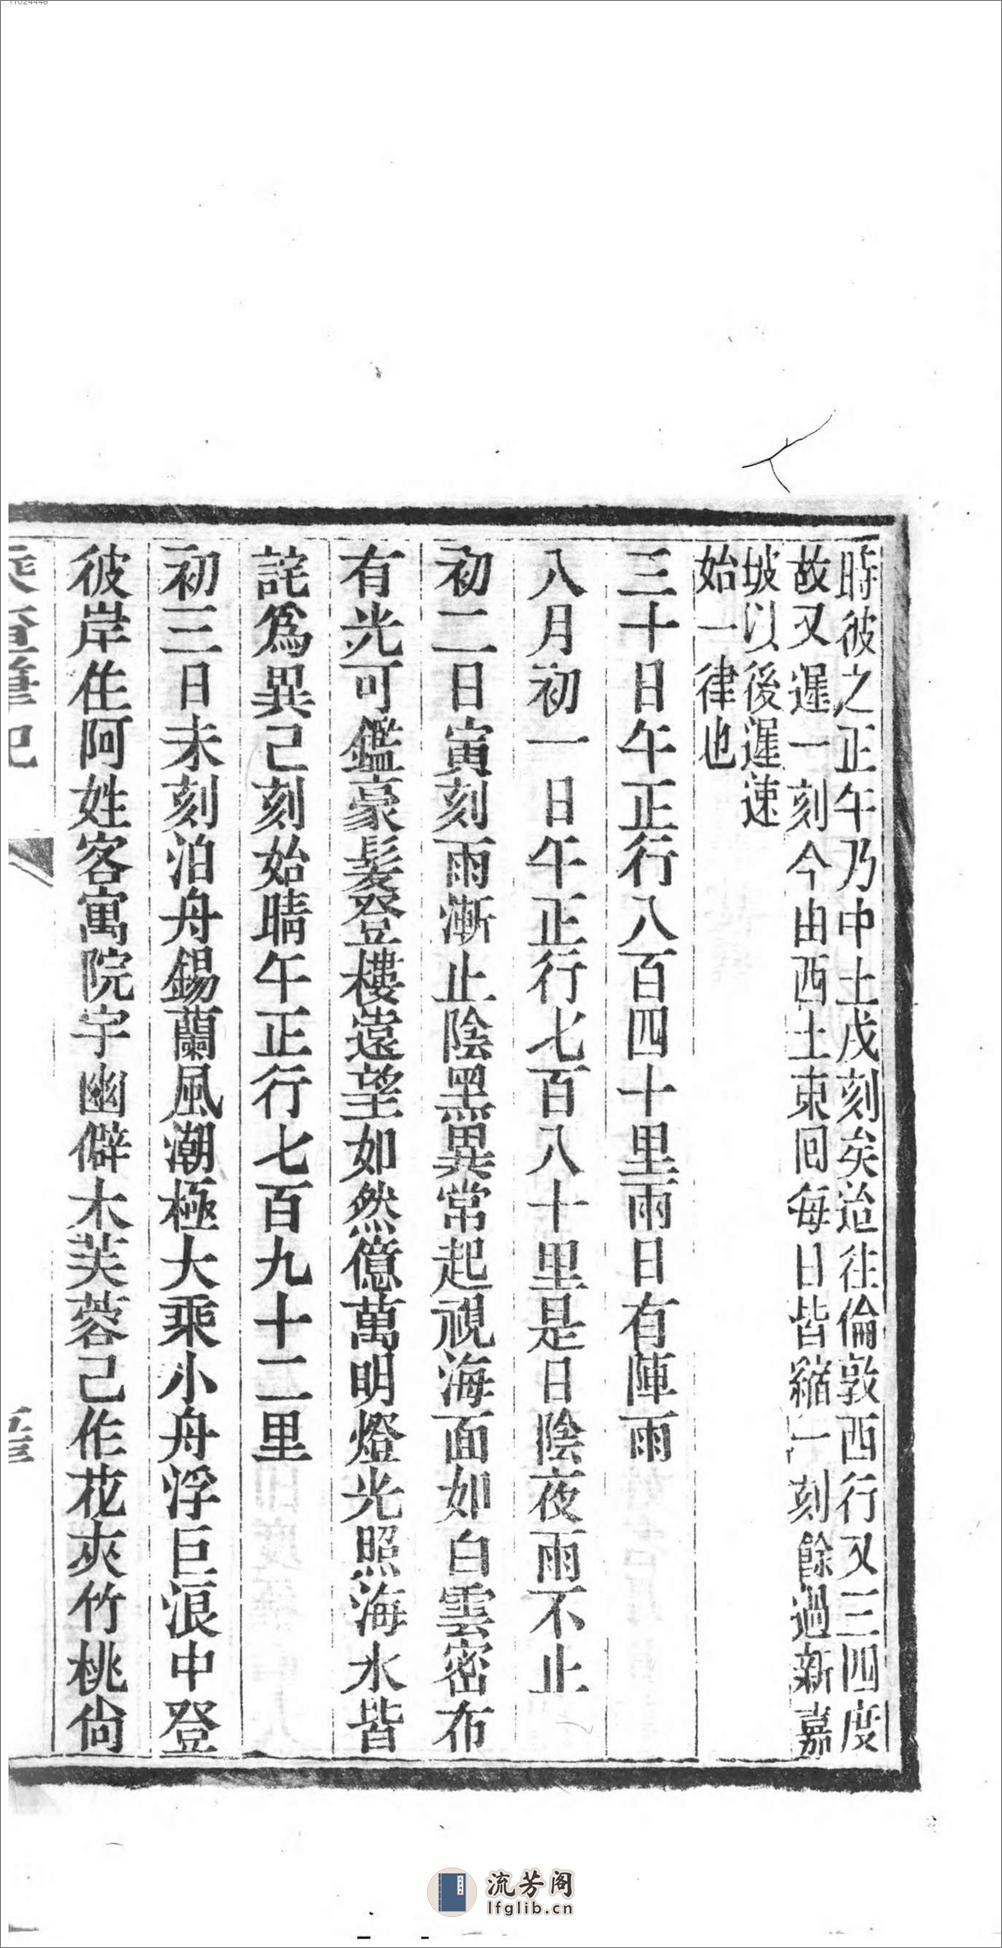 時彼之正午乃中土戌刻矣迨往倫敦西行又三四度
故又遲一刻今由西土東囘每日皆縮一刻餘過新嘉
坡以後遲速
始一律也
三十日午正行八百四十里雨日有陣雨
八月初一日午正行七百八十里是日陰夜雨不止
初二日寅刻雨漸止陰黑異常起視海面如白雲密布
有光可鑑豪髮登樓遠望如然億萬明燈光照海水皆
詫爲異己刻始晴午正行七百九十二里
初三日未刻泊舟錫蘭風潮極大乘小舟浮巨浪中登
彼岸住阿姓客寓院宇幽僻木芙蓉己作花夾竹桃尙
乘查筆記
流芳阁
lfglib.cn
11024448